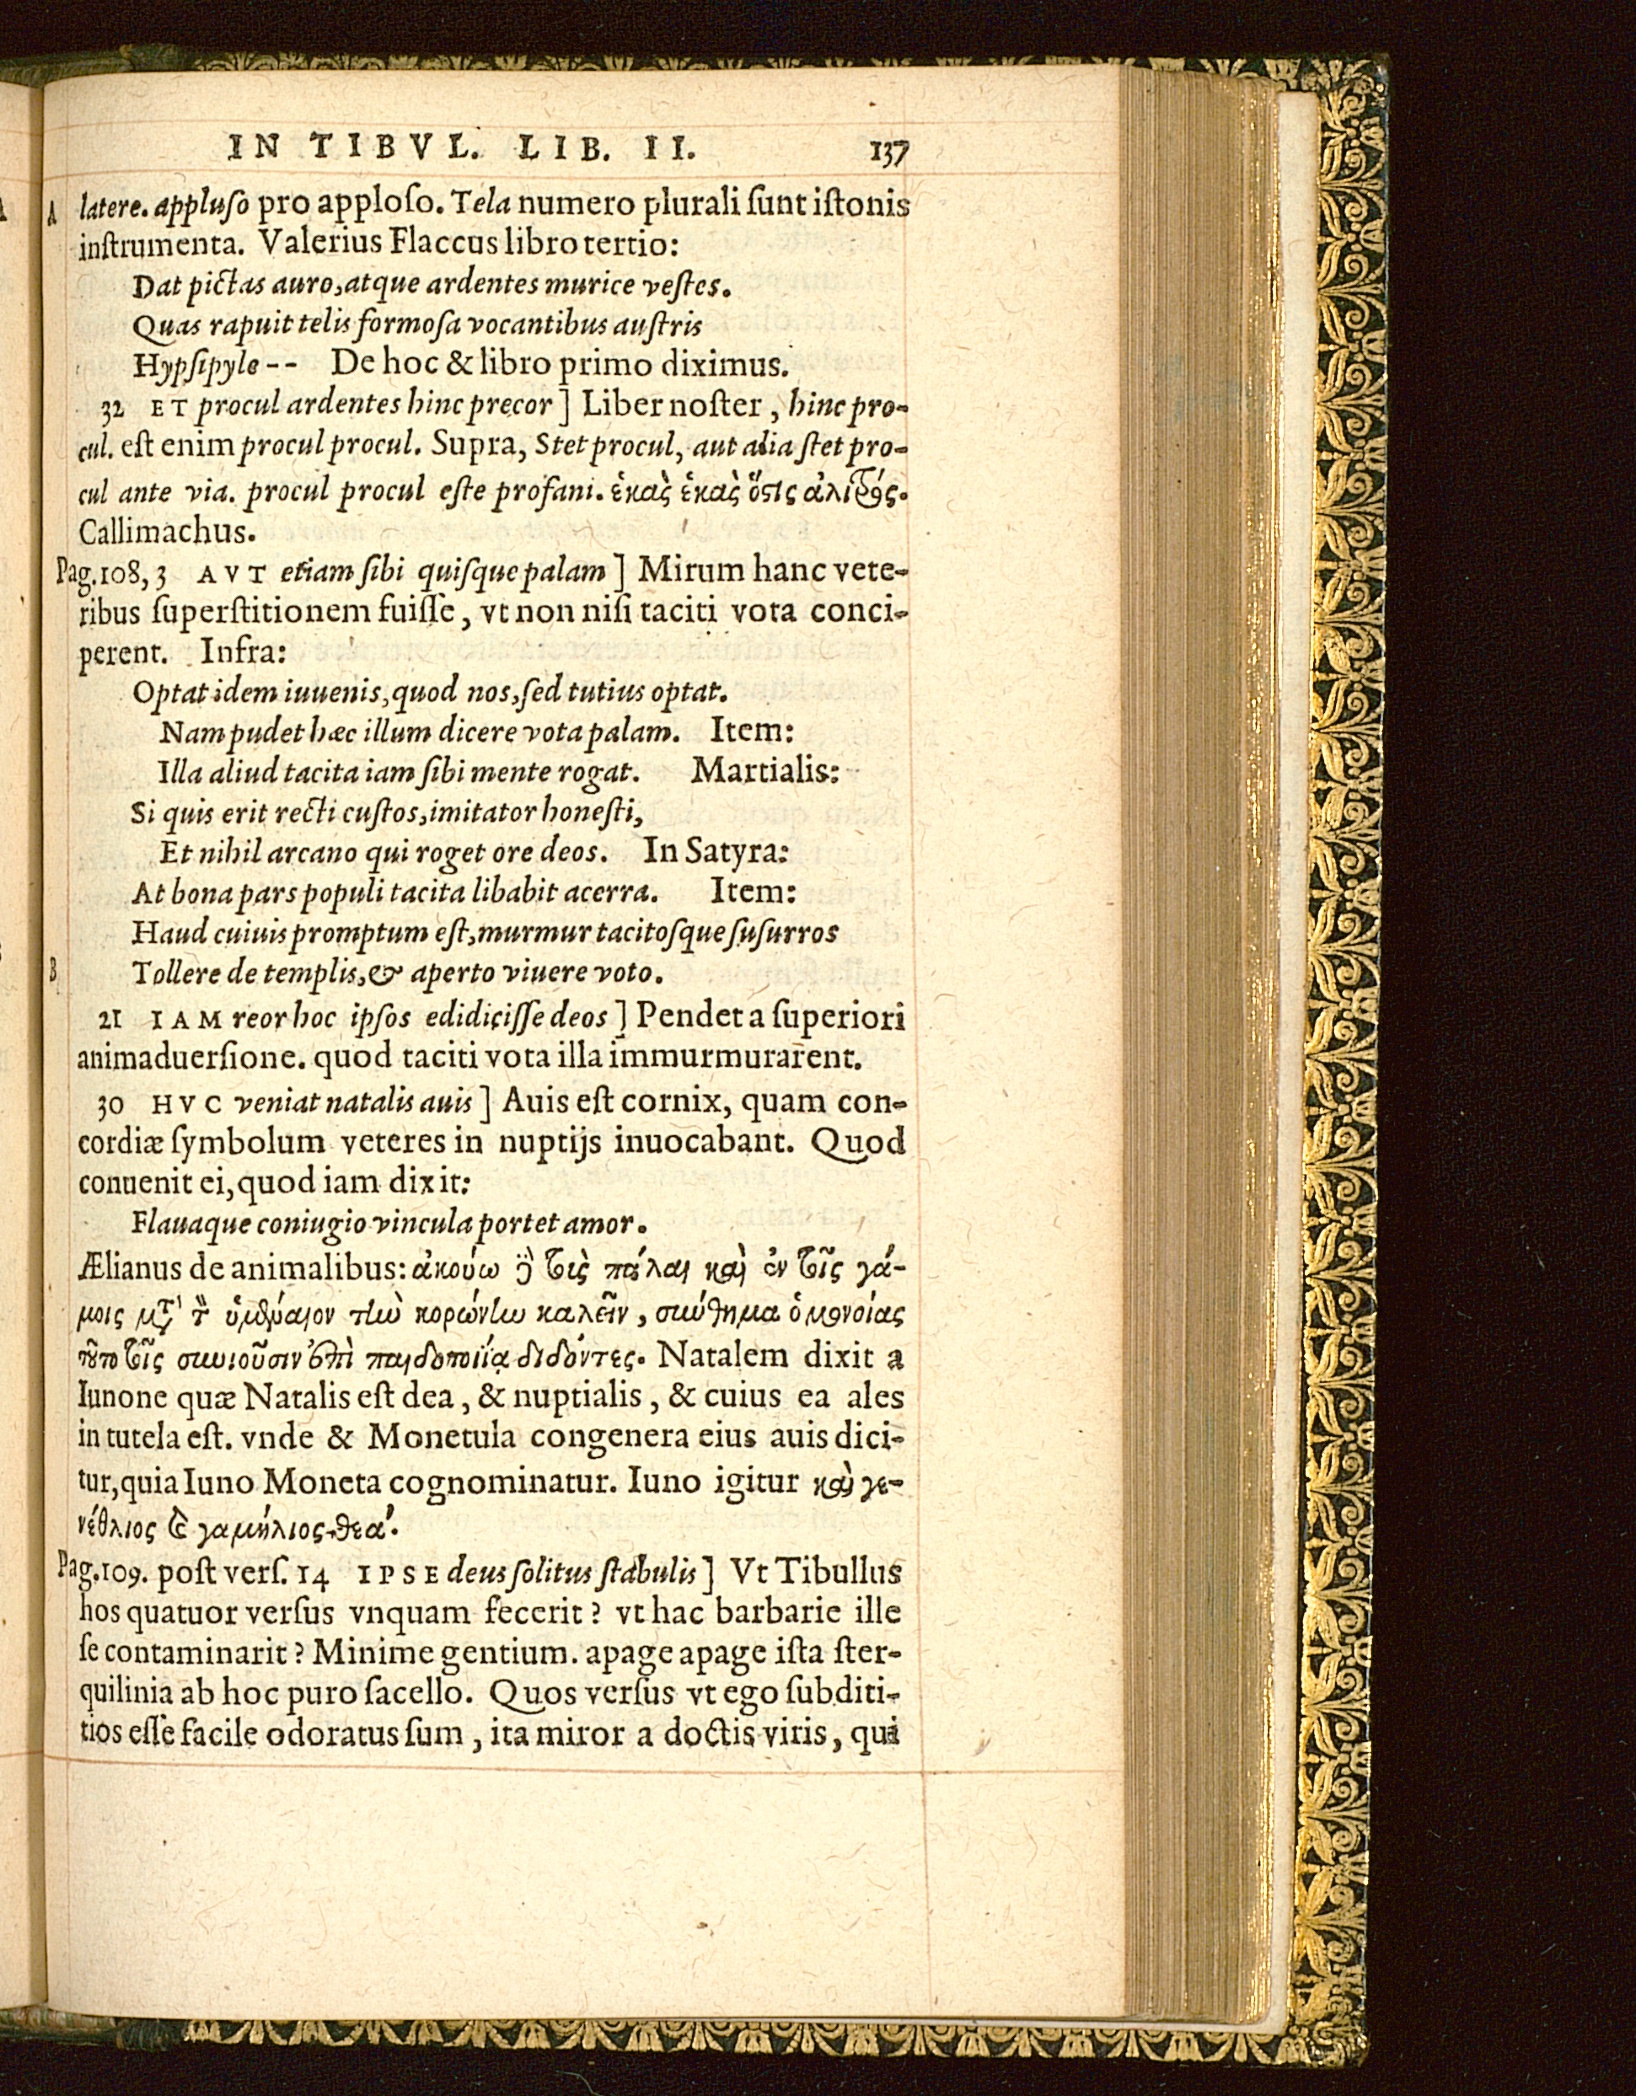 IN TIBVL. LIB. II. 137
A latere. appluſo pro apploſo. Tela numero plurali ſunt iſtonis
inſtrumenta. Valerius Flaccus libro tertio:
Dat pictas auro, atque ardentes murice veſtes.
Quas rapuit telis formoſa vocantibus auſtris
Hypſipyle -- De hoc & libro primo diximus.
32 ET procul ardentes hinc precor] Liber noſter, hinc pro-
cul. eſt enim procul procul. Supra, Stet procul, aut alia ſtet pro-
cul ante via. procul procul eſte profani. ἑκὰς ἑκὰς ὅστις ἀλιτρός.
Callimachus.
Pag. 108, 3 AVT etiam ſibi quiſque palam] Mirum hanc vete-
ribus ſuperſtitionem fuiſſe, vt non niſi taciti vota conci-
perent. Infra:
Optat idem iuuenis, quod nos, ſed tutius optat.
Nam pudet hæc illum dicere vota palam. Item:
Illa aliud tacita iam ſibi mente rogat. Martialis:
Si quis erit recti cuſtos, imitator honeſti,
Et nihil arcano qui roget ore deos. In Satyra:
At bona pars populi tacita libabit acerra. Item:
Haud cuiuis promptum eſt, murmur tacitoſque ſuſurros
B Tollere de templis, & aperto viuere voto.
21 IAM reor hoc ipſos edidiciſſe deos] Pendet a ſuperiori
animaduerſione. quod taciti vota illa immurmurarent.
30 HVC veniat natalis auis] Auis eſt cornix, quam con-
cordiæ ſymbolum veteres in nuptijs inuocabant. Quod
conuenit ei, quod iam dixit:
Flauaque coniugio vincula portet amor.
Ælianus de animalibus: ἀκούω δὲ τοὺς πάλαι καὶ ἐν τοῖς γά-
μοις μετὰ τὸν ὑμέναιον τὴν κορώνην καλεῖν, σύνθημα ὁμονοίας
τοῦτο τοῖς συνιοῦσιν ἐπὶ παιδοποιίᾳ διδόντες. Natalem dixit a
Iunone quæ Natalis eſt dea, & nuptialis, & cuius ea ales
in tutela eſt. vnde & Monetula congenera eius auis dici-
tur, quia Iuno Moneta cognominatur. Iuno igitur καὶ γε-
νέθλιος καὶ γαμήλιος θεά.
Pag. 109. poſt verſ. 14 IPSE deus ſolitus ſtabulis] Vt Tibullus
hos quatuor verſus vnquam fecerit? vt hac barbarie ille
ſe contaminarit? Minime gentium. apage apage iſta ſter-
quilinia ab hoc puro ſacello. Quos verſus vt ego ſubditi-
tios eſſe facile odoratus ſum, ita miror a doctis viris, qui